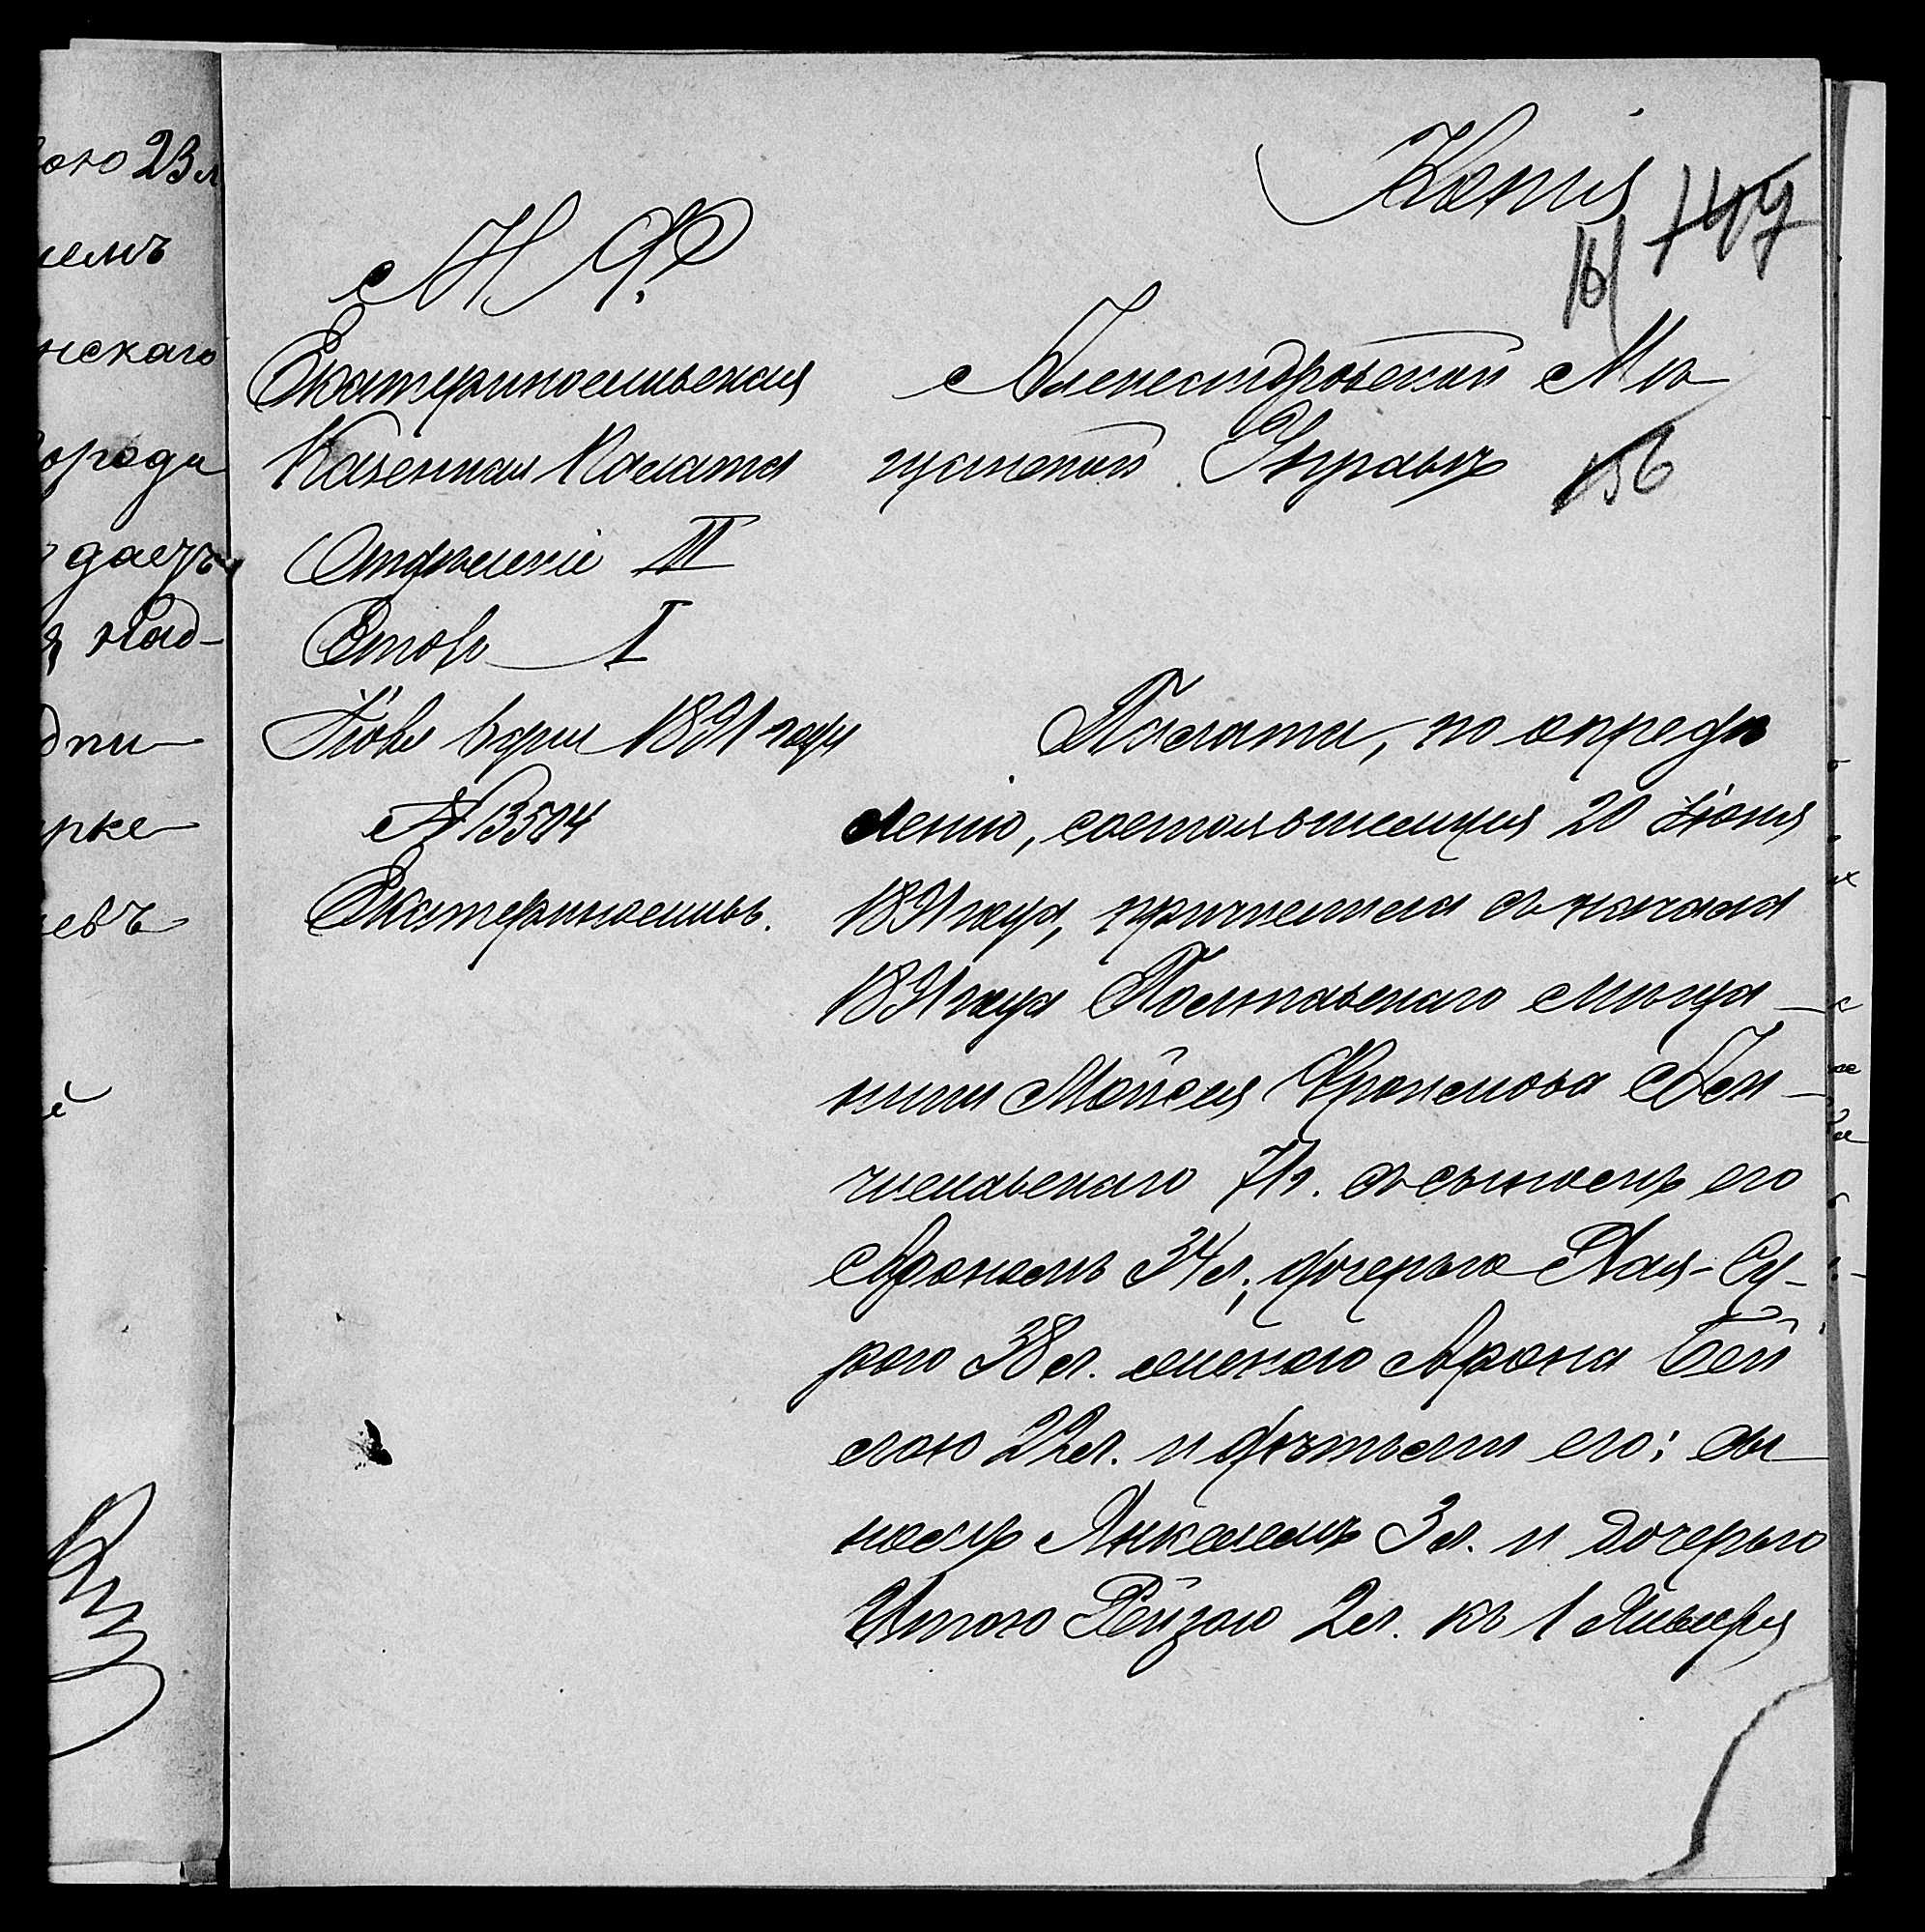 ою 23 л
емъ
нскаго
ороди
даетъ
над-
дпи
рке
евъ
Копія
147
161
М. Ф.
Екатеринославская
Казенная Палата
Отделеніе III
Столъ I
Іюля 6 дня 1891 года
№ 13504
Екатеринославъ.
Александровской Мѣ
щанской Управѣ
156
Палата, по опредѣ
ленію, состоявшемуся 20 Іюня
1891 года, причислила съ начала
1891 года Полтавскаго мѣща-
нина Мойсея Фроимова
71 г. съ сыномъ его
Арономъ 34 л., дочерью Хая-Су-
рою 38 л. женою Арона Бей
лою 22 л. и дѣтьми его: сы
номъ Янкелемъ 3 л. и дочерью
Итою Рейзою 2 л. къ 1 Января